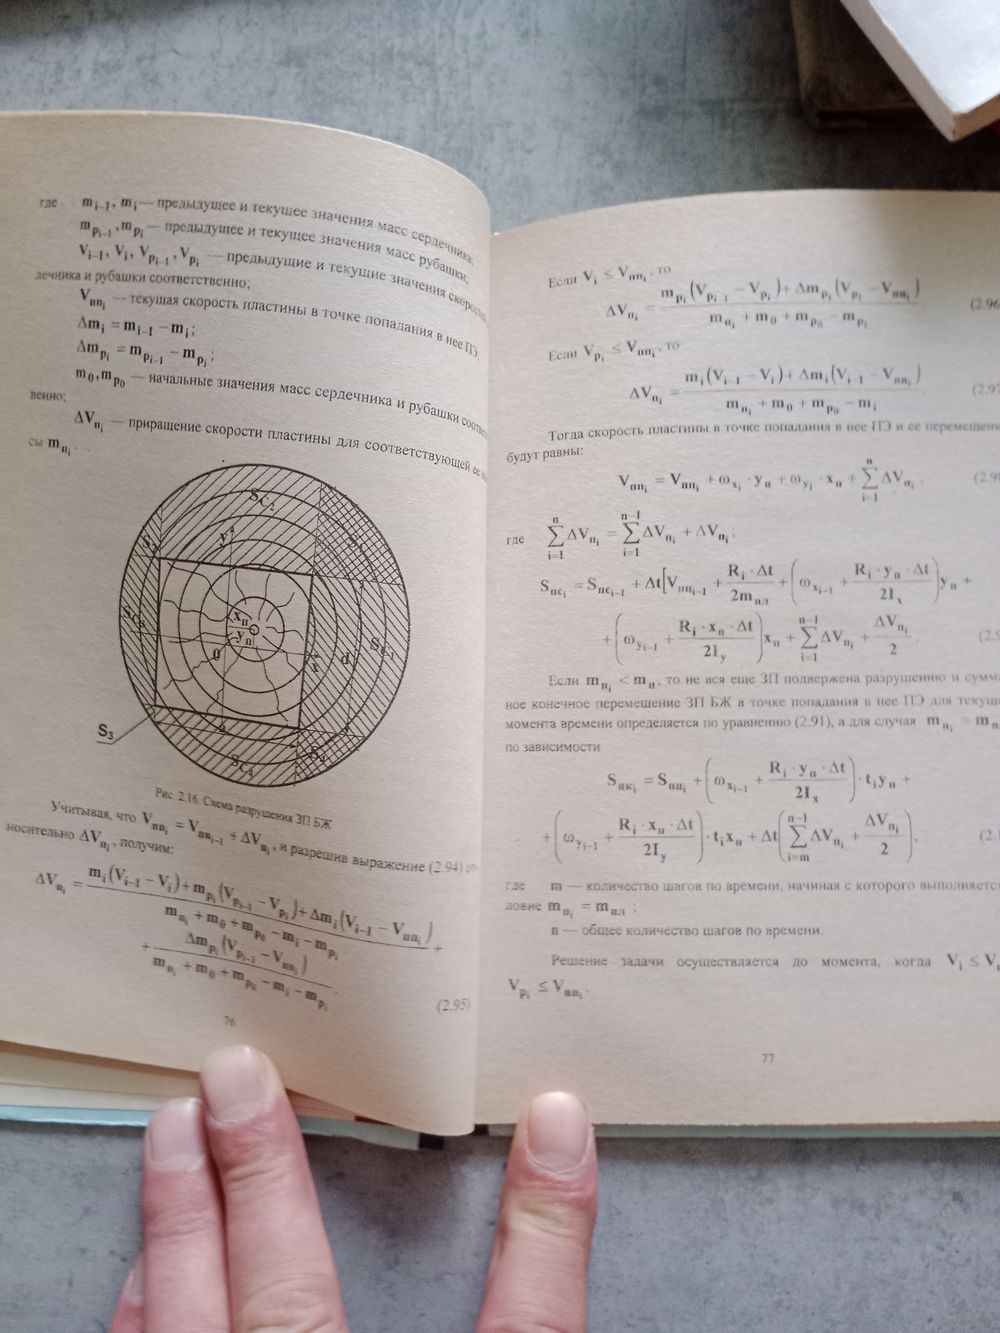 где m_{i-1}, m_i — предыдущее и текущее значения масс сердечника;
m_{p_{i-1}}, m_{p_i} — предыдущее и текущее значения масс рубашки;
V_{i-1}, V_i, V_{p_{i-1}}, V_{p_i} — предыдущие и текущие значения скоростей
дечника и рубашки соответственно;
V_{пп_i} — текущая скорость пластины в точке попадания в нее ПЭ;
Δm_i = m_{i-1} − m_i;
Δm_{p_i} = m_{p_{i-1}} − m_{p_i};
m_0, m_{p_0} — начальные значения масс сердечника и рубашки соответ
венно;
ΔV_{п_i} — приращение скорости пластины для соответствующей ее ма
сы m_{п_i}.
S_{C_2}
y
S_1
x_п
y_п
0
x
d
S_{C_1}
S_3
S_4
S_{C_3}
Рис. 2.16. Схема разрушения ЗП БЖ
Учитывая, что V_{пп_i} = V_{пп_{i-1}} + ΔV_{п_i}, и разрешив выражение (2.94) от-
носительно ΔV_{п_i}, получим:
ΔV_{п_i} = \frac{m_i(V_{i-1} − V_i) + m_{p_i}(V_{p_{i-1}} − V_{p_i}) + Δm_i(V_{i-1} − V_{пп_i})}{m_{п_i} + m_0 + m_{p_0} − m_i − m_{p_i}} +
+ \frac{Δm_{p_i}(V_{p_{i-1}} − V_{пп_i})}{m_{п_i} + m_0 + m_{p_0} − m_i − m_{p_i}}.
(2.95)
76
Если V_i ≤ V_{пп_i}, то
ΔV_{п_i} = \frac{m_{p_i}(V_{p_{i-1}} − V_{p_i}) + Δm_{p_i}(V_{p_i} − V_{пп_i})}{m_{п_i} + m_0 + m_{p_0} − m_{p_i}}. (2.96
Если V_{p_i} ≤ V_{пп_i}, то
ΔV_{п_i} = \frac{m_i(V_{i-1} − V_i) + Δm_i(V_{i-1} − V_{пп_i})}{m_{п_i} + m_0 + m_{p_0} − m_i} (2.97
Тогда скорость пластины в точке попадания в нее ПЭ и ее перемещение
будут равны:
V_{пп_i} = V_{пп_i} + ω_{x_i} · y_п + ω_{y_i} · x_п + \sum_{i=1}^{n} ΔV_{п_i}. (2.98
где \sum_{i=1}^{n} ΔV_{п_i} = \sum_{i=1}^{n-1} ΔV_{п_i} + ΔV_{п_i};
S_{пс_i} = S_{пс_{i-1}} + Δt[V_{пп_{i-1}} + \frac{R_i · Δt}{2m_{пл}} + (ω_{x_{i-1}} + \frac{R_i · y_п · Δt}{2I_x})y_п +
+ (ω_{y_{i-1}} + \frac{R_i · x_п · Δt}{2I_y})x_п + \sum_{i=1}^{n-1} ΔV_{п_i} + \frac{ΔV_{п_i}}{2} (2.9
Если m_{п_i} < m_п, то не вся еще ЗП подвержена разрушению и сумма
ное конечное перемещение ЗП БЖ в точке попадания в нее ПЭ для текуще
момента времени определяется по уравнению (2.91), а для случая m_{п_i} = m_п
по зависимости
S_{пк_i} = S_{пп_i} + (ω_{x_{i-1}} + \frac{R_i · y_п · Δt}{2I_x}) · t_i y_п +
+ (ω_{y_{i-1}} + \frac{R_i · x_п · Δt}{2I_y}) · t_i x_п + Δt(\sum_{i=m}^{n-1} ΔV_{п_i} + \frac{ΔV_{п_i}}{2}), (2.
где m — количество шагов по времени, начиная с которого выполняетс
ловие m_{п_i} = m_{пл};
n — общее количество шагов по времени.
Решение задачи осуществляется до момента, когда V_i ≤ V
V_{p_i} ≤ V_{пп_i}.
77